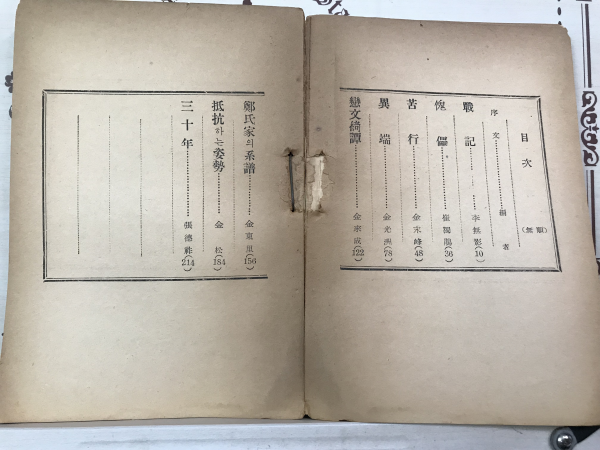 目次 (無順)
序文 編者
戰記 李無影 (10)
傀儡 崔獨鵑 (36)
苦行 金永峰 (48)
異端 金光洲 (78)
戀文綺譚 金宗成 (122)
鄭氏家의 系譜 金東里 (156)
抵抗하는 姿勢 金松 (184)
三十年 張德祚 (214)